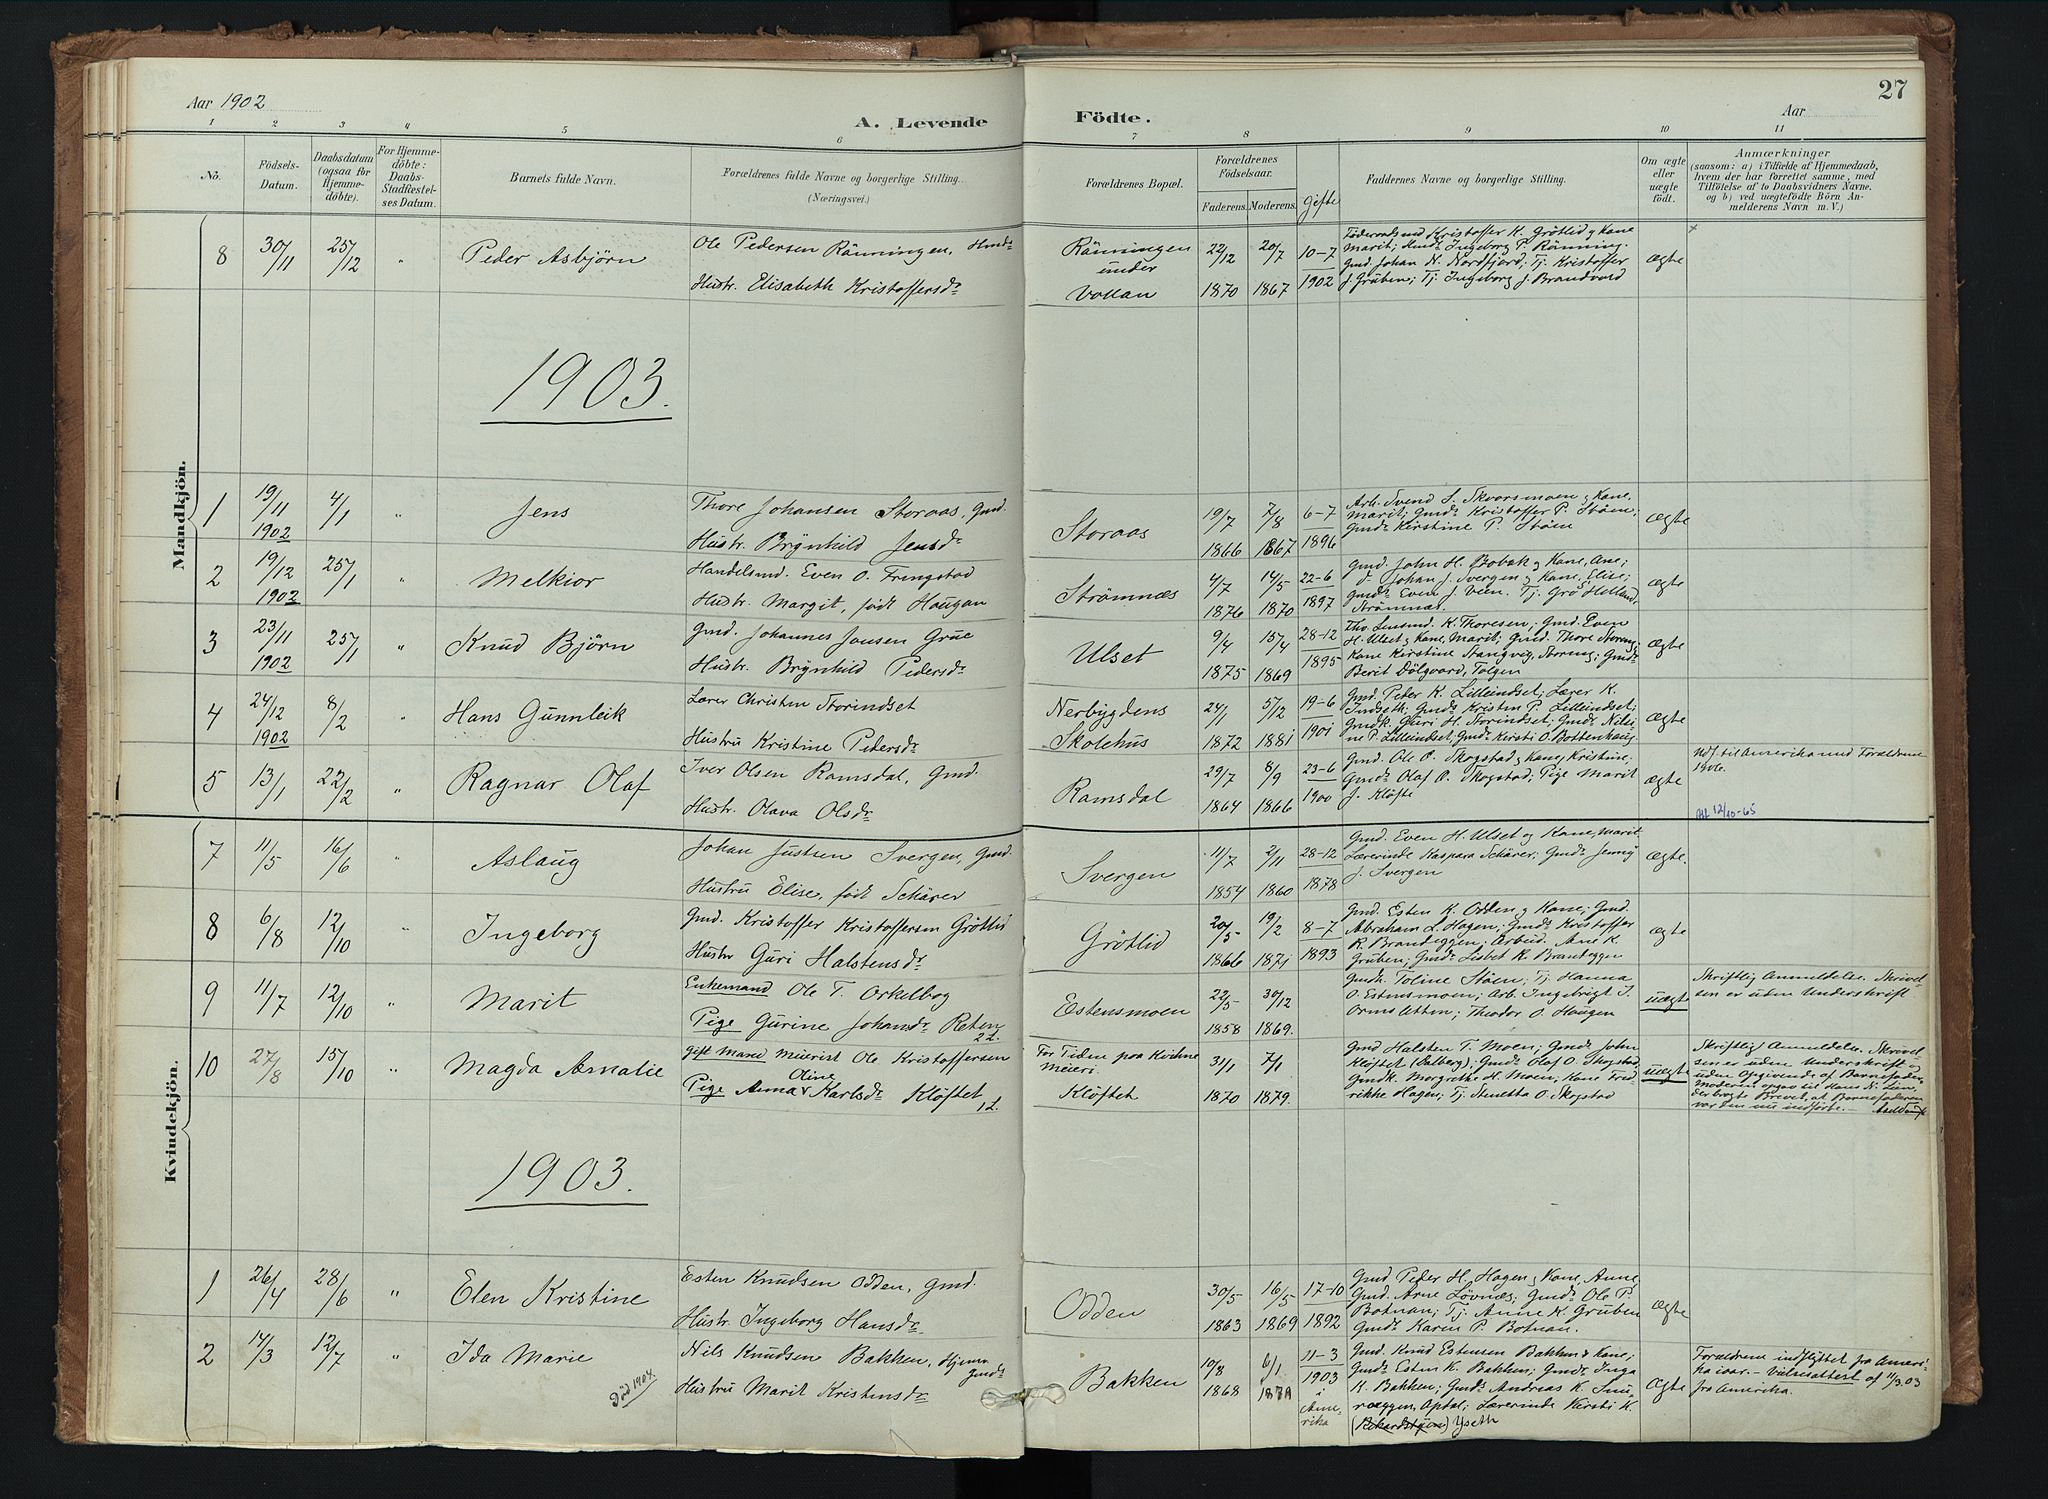 Aar 1902
A. Levende
Födte.
Aar
27
1 2 3 4 5 6 7 8 9 10 11
No.
Födsels-
Datum.
Daabsdatum
(ogsaa for
Hjemme-
döbte).
For Hjemme-
döbte:
Daabs-
Stadfæstel-
ses Datum.
Barnets fulde Navn.
Forældrenes fulde Navne og borgerlige Stilling.
(Næringsvei.)
Forældrenes Bopæl.
Forældrenes
Födselsaar.
Faderens. Moderens.
Gifte
Faddernes Navne og borgerlige Stilling.
Om ægte
eller
uægte
födt.
Anmærkninger
(saasom: a) i Tilfælde af Hjemmedaab,
hvem der har forrettet samme, med
Tilföielse af to Daabsvidners Navne.
og b) ved uægtefödte Börn An-
melderens Navn m. V.)
Mandkjön.
8 30/11 25/12 " Peder Asbjörn
Ole Pedersen Rönningen,
Hustr. Elisabeth Kristoffersdr
Rönningen
under
Vollan
22/12 1870
20/7 1867
10-7 1902
Kristoffer K. Grötlid & Kane
Marit; Gmdr Ingeborg P. Rönning.
Gmd. Johan N. Nordfjord; Tj. Kristoffer
J. Gruben; Tj. Ingeborg J. Brandvold
ægte
x
1903.
1 19/11 1902 4/1 " Jens
Thore Johansen Storaas, Gmd.
Hustr. Brynhild Jensdr
Storaas
19/7 1866
7/8 1867
6-7 1896
Arb. Svend S. Skvorsmoen & Kane,
Marit; Gmdr Kristoffer P. Stöen;
Gmdr Kirstine P. Stöen
ægte
2 19/12 1902 25/1 " Melkior
Handelsmd. Even O. Fringstad
Hustr. Margit, födt Haugan
Strömnæs
4/7 1876
14/5 1870
22-6 1897
Gmd. John H. Bobak & Kane, Ane;
d. Johan J. Svergen & Kane, Elise;
Gmdr Even J. Veen. Tj. Gro Helland,
Strömnæs.
ægte
3 23/11 1902 25/1 " Knud Björn
Gmd. Johannes Jonsen Grue
Hustr. Brynhild Pedersdr
Ulset
9/4 1875
15/4 1869
28-12 1895
Lensmd. K. Thoresen; Gmd. Even
H. Ulset & Kane, Marit; Gmd. Thore
Kane Kirstine Stangvig, Gmdr
Berit Dölgaard, Tolgen
ægte
4 24/12 1902 8/2 " Hans Gunnleik
Lærer Christen Storindset
Hustru Kristine Pedersdr
Nerbygdens
Skolehus
24/1 1872
5/12 1881
19-6 1901
Gmd. Peder K. Lilleindset; Lærer K.
Indseth; Gmdr Kristen P. Lilleindset;
Gmdk. Guri H. Storindset; Gmdr Niki-
ne P. Lilleindset, Gmdr Kirsti O. Bottenhaug
ægte
5 13/1 22/2 " Ragnar Olaf
Iver Olsen Ramsdal, Gmd.
Hustr. Olava Olsdr
Ramsdal
29/7 1864
8/9 1866
23-6 1900
Gmd. Ole P. Skogstad & Kane, Kristine;
Gmdr Olaf O. Skogstad; Pige Marit
J. Klöfte
ægte
Udf. til Amerika med Forældrene
1906.
12/10-65
Kvindekjön.
7 11/5 16/6 " Aslaug
Johan Justsen Svergen, Gmd.
Hustru Elise, födt Schärer
Svergen
11/7 1854
2/11 1860
28-12 1878
Gmd. Even H. Ulset og Kane, Marit
Lærerinde Kaspara Schärer; Gmdr Jenny
J. Svergen
ægte.
8 6/8 12/10 " Ingeborg
Gmd. Kristoffer Kristoffersen Grötlid
Hustr Guri Halstensdr
Grötlid
20/5 1866
19/2 1871
8-7 1893
Gmd. Esten K. Odden & Kane; Gmd.
Abraham L. Hagen; Gmdr Kristoffer
R. Brandeggen; Arbeid. Ane K.
Gruben; Gmdr Lisbet K. Brandeggen
ægte
9 11/7 12/10 " Marit
Enkemand Ole T. Orkelbog
Pige Gurine Johansdr Reten
2 L.
Estensmoen
22/5 1858
30/12 1869.
Gmdr. Toline Stöen; Tj. Hanna
O. Estensmoen; Arb. Ingebrigt I.
Ormsetten; Theodor O. Haugen
uægte
Skriftlig Anmeldelse. Skrivel-
sen er uden Underskrift
10 27/8 15/10 Magda Amalie
gift Mand Meierist Ole Kristoffersen
Pige Anna Oline Karlsdr Klöftet
1 L.
For Tiden paa Kvikne
Meieri
Klöftet
31/1 1870
7/1 1879.
Gmd Halsten T. Moen; Gmdr John
Klöftet (Dalberg); Gmdr Olaf O. Skogstad,
Gmdk. Margrethe H. Moen, Kane Fred-
rikke Hagen; Tj. Anetta O. Skogstad
uægte
Skriftlig Anmeldelse. Skrivel-
sen er uden Underskrift og
uden Opgivende af Barnefader.
Moderen opgav til Hans N. Lien,
der bragte Brevet, at Barnefaderen
var den nu indförte.
1903.
1 26/4 28/6 " Elen Kristine
Esten Knudsen Odden, Gmd.
Hustr. Ingeborg Hansdr
Odden
30/5 1863
16/5 1869
17-10 1892
Gmd Peder H. Hagen & Kane, Anne
Gmd. Arne Lövnæs; Gmdr Ole P.
Botnan; Tj. Anne K. Gruben
Gmdr Karen P. Botnan.
ægte
2 14/3 12/7 " Ida Marie
Död 1904.
Nils Knudsen Bakken, Hjemm. Gmds
Hustru Marit Kristensdr
Bakken
10/8 1868
6/1
11-3
1903
i
Ame-
rika
Gmd. Knud Estensen Bakken & Kane;
Gmdr Esten K. Bakken; Gmdr Inga
K. Bakken; Gmdr Andreas K.
Opdal; Lærerinde Kirsti K.
Yseth
ægte
Forældrene indflyttet fra Ameri-
ka iaar. – Vielsesattest af 11/3.03
fra Amerika.